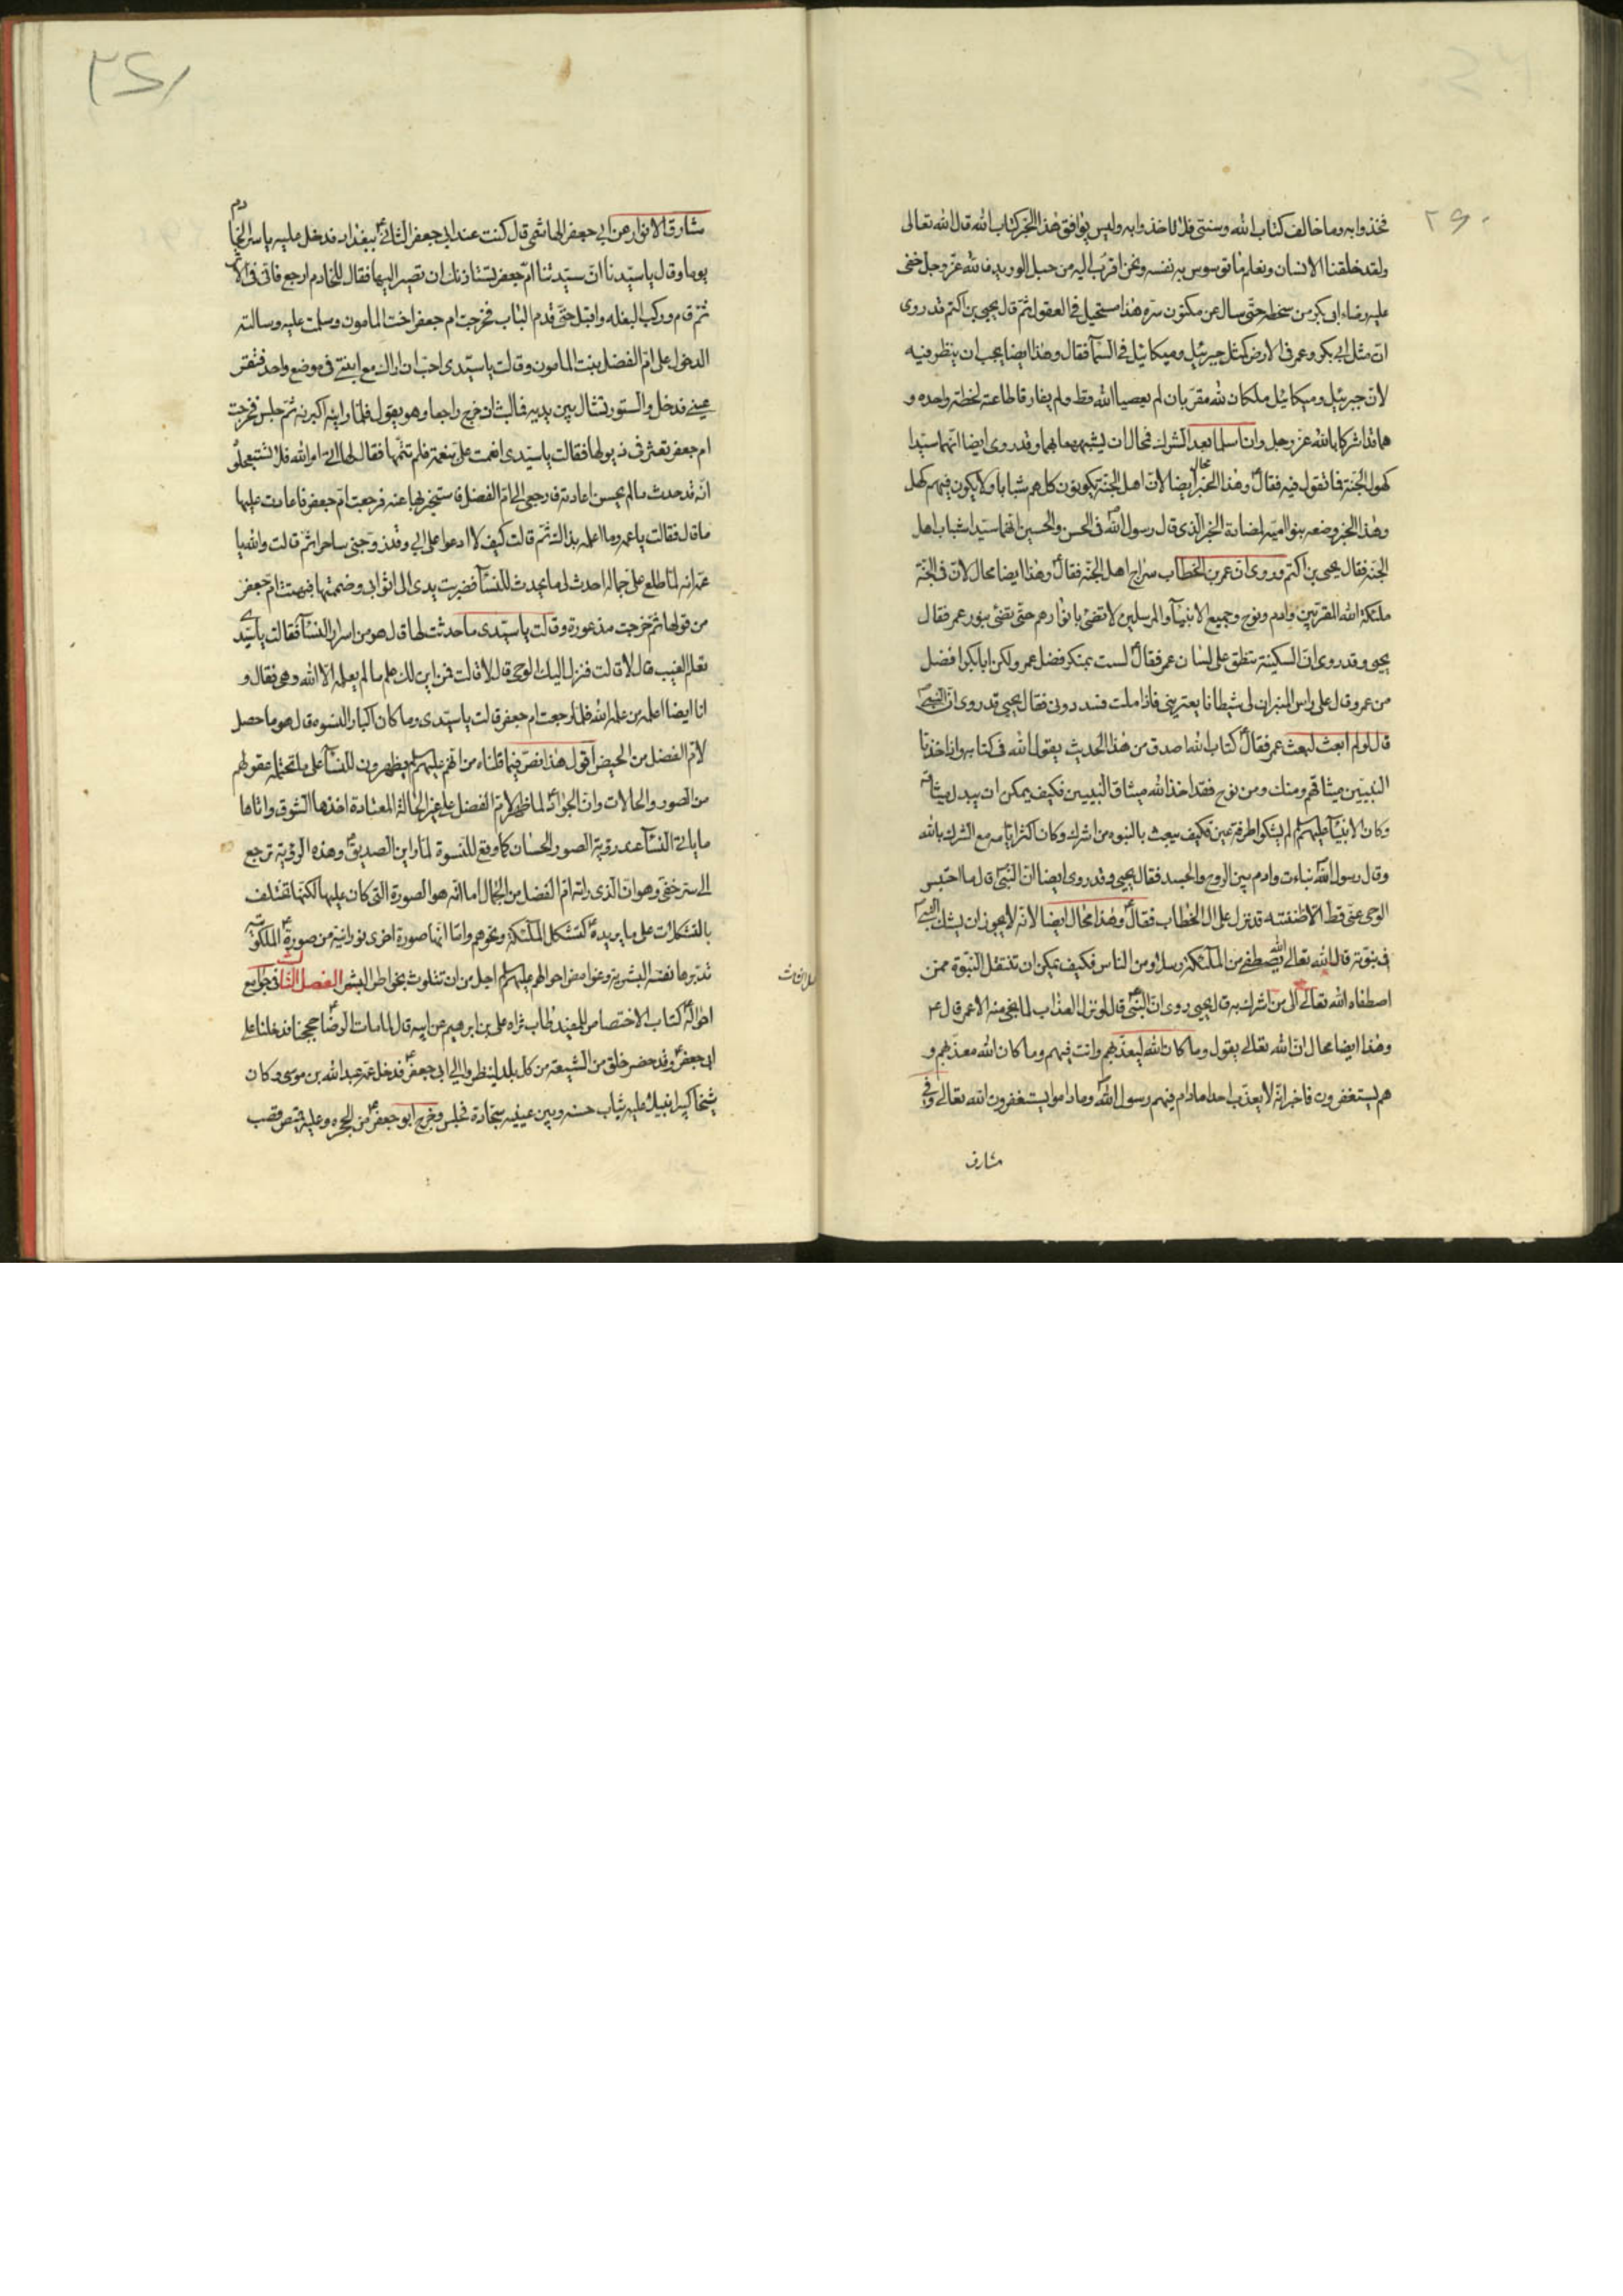 ٢٦٠
فخذوا به وما خالف كتاب الله وسنتى فلا تاخذوا به وليس يوافق هذا الخبر كتاب الله قال الله تعالى
ولقد خلقنا الانسان ونعلم ما توسوس به نفسه ونحن اقرب اليه من حبل الوريد فالله عز وجل خفى
عليه رضاء ابى بكر من سخطه حتى سال عن مكنون سره هذا مستحيل فى العقول ثم قال يحيى بن اكثم قد روى
ان مثل ابى بكر وعمر فى الارض كمثل جبرئيل وميكائيل فى السمآء فقال وهذا ايضا يجب ان ينظر فيه
لان جبرئيل وميكائيل ملكان لله مقربان لم يعصيا الله قط ولم يفارقا طاعته لحظة واحده و
هما قد اشركا بالله عز وجل وان اسلما بعد الشرك فمحال ان يشبههما بهما وقد روى ايضا انهما سيدا
كهول الجنة فما تقول فيه فقال وهذا الخبر محال ايضا لان اهل الجنة يكونون كلهم شبابا ولا يكون فيهم كهل
وهذا الخبر وضعه بنو امية لمضادة الخبر الذى قال رسول الله فى الحسن والحسين انهما سيدا شباب اهل
الجنه فقال يحيى بن اكثم وروى ان عمر بن الخطاب سراج اهل الجنه فقال وهذا ايضا محال لان فى الجنة
ملئكة الله المقربين وادم ونوح وجميع الانبيآء والمرسلين لا تضئ بانوارهم حتى تضئ بنور عمر فقال
يحيى وقد روى ان السكينة تنطق على لسان عمر فقال لست بمنكر فضل عمر ولكن ابا بكر افضل
من عمر وقال على راس المنبر ان لى شيطانا يعترينى فاذا ملت فسددونى فقال يحيى قد روى ان النبى
قال لو لم ابعث لبعث عمر فقال كتاب الله اصدق من هذا الحديث يقول الله فى كتابه واذ اخذنا
النبيين ميثاقهم ومنك ومن نوح فقد اخذ الله ميثاق النبيين فكيف يمكن ان يبدل ميثاقه
وكان الانبيآء عليهم لم يشركوا طرفة عين فكيف يبعث بالنبوه من اشرك وكان اكثر ايامه مع الشرك بالله
وقال رسول الله نباءت وادم بين الروح والجسد فقال يحيى وقد روى ايضا ان النبى قال ما احتبس
الوحى عنى قط الا ظننته قد نزل على ال الخطاب فقال وهذا محال ايضا لانه لا يجوز ان يشك النبى
فى نبوته قال الله تعالى الله يصطفى من الملئكة رسلا ومن الناس فكيف يمكن ان تنتقل النبوة ممن
اصطفاه الله تعالى الى من اشرك به قال يحيى روى ان النبى قال لو نزل العذاب لما نجى منه الا عمر قال
وهذا ايضا محال ان الله تعالى يقول وما كان الله ليعذبهم وانت فيهم وما كان الله معذبهم و
هم يستغفرون فاخبر انه لا يعذب احدا مادام فيهم رسول الله وما داموا يستغفرون الله تعالى وفى
مشارق
٢٦١
مشارق الانوار عن ابى جعفر الهاشمى قال كنت عند ابى جعفر الثانى ببغداد فدخل عليه ياسر الخادم
يوما وقال يا سيدنا ان سيدتنا ام جعفر تستاذنك ان تصير اليها فقال للخادم ارجع فانى فى الاثر
ثم قام وركب البغله واقبل حتى قدم الباب فخرجت ام جعفر اخت المامون وسلمت عليه وسالته
الدخول على ام الفضل بنت المامون وقالت يا سيدى احب ان اراك مع ابنتى فى موضع واحد فتقر
عينى فدخل والستور تشال بين يديه فما لبث ان خرج راجعا وهو يقول فلما راينه اكبرنه ثم جلس فخرجت
ام جعفر تعثر فى ذيولها فقالت يا سيدى انعمت على بنعمة فلم تتمها فقال لها اتى امر الله فلا تستعجلوه
انه قد حدث ما لم يحسن اعادته فارجعى الى ام الفضل فاستخبريها عنه فرجعت ام جعفر فاعادت عليها
ما قال فقالت يا عمه وما اعلمه بذاك ثم قالت كيف لا ادعوا على ابى وقد زوجنى ساحرا ثم قالت والله يا
عمه انه لما طلع على جماله احدث لى ما يحدث للنسآء فضربت يدى الى اثوابى وضممتها فبهتت ام جعفر
من قولها ثم خرجت مذعورة وقالت يا سيدى ما حدثت لها قال هو من اسرار النسآء فقالت يا سيدى
تعلم الغيب قال لا قالت فنزل اليك الوحى قال لا قالت فمن اين لك علم ما لم يعلمه الا الله وهى فقال و
انا ايضا اعلمه من علم الله فلما رجعت ام جعفر قالت يا سيدى وما كان اكبار النسوه قال هو ما حصل
لام الفضل من الحيض اقول هذا نص فيما قلناه من انهم عليهم يظهرون للنسآء على ما تحتمله عقولهم
من الصور والحالات وان الجواد لما ظهر لام الفضل على غير الحالة المعتادة اخذها الشوق واتاها
ما ياتى النسآء عند رؤية الصور الحسان كما وقع للنسوة لما راين الصديق وهذه الرؤية ترجع
الى سر خفى وهو ان الذى راته ام الفضل من الجمال اما انه هو الصورة التى كان عليها لكنها تختلف
بالتشكلات على ما يريده كتشكل الملئكة ونحوهم واما انها صورة اخرى نورانية من صورة الملكوتية
تدبرها نفسه البشرية وغوامض احوالهم عليهم اجل من ان تتلوث بخواطر البشر الفصل الثانى فى جوامع
احواله كتاب الاختصاص للمفيد طاب ثراه على بن ابرهيم عن ابيه قال لما مات الرضا حججنا فدخلنا على
ابى جعفر وقد حضر خلق من الشيعة من كل بلد لينظروا الى ابى جعفر فدخل عمه عبد الله بن موسى وكان
شيخا كبيرا نبيلا عليه ثياب خشنه وبين عينيه سجادة فجلس وخرج ابو جعفر من الحجره وعليه قميص قصب